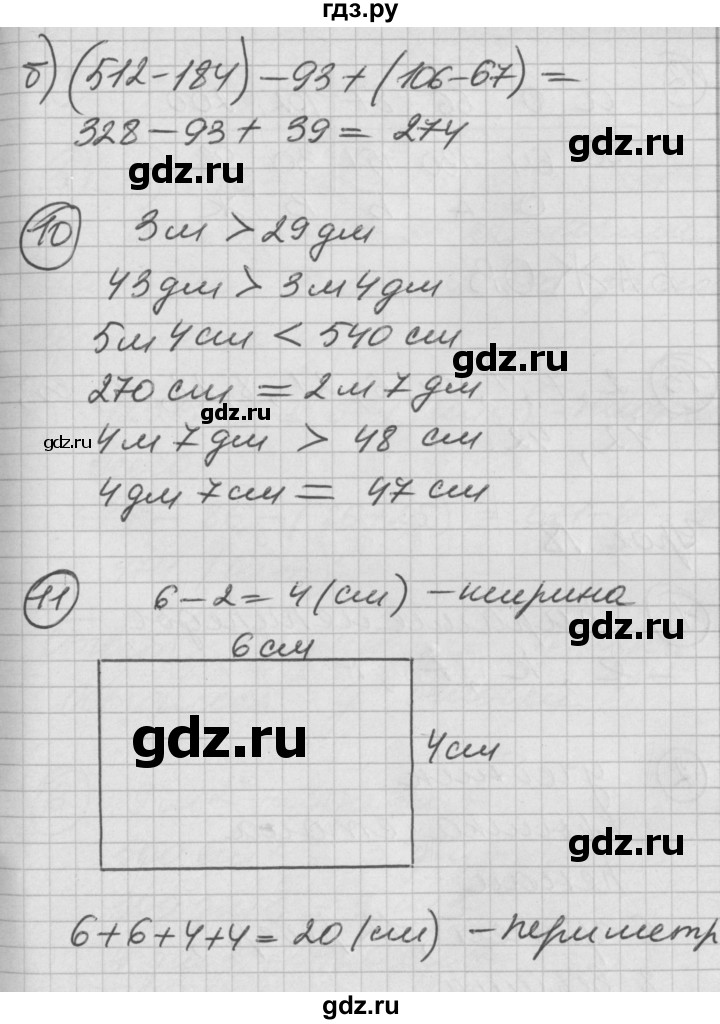 гдз.ру
б) (512-184) -93+(106-67) =
328-93+ 39= 274
gdz.ru
gdz.ru
10 3м > 29 дм
43 дм > 3м 4 дм
5м 4 см < 540 см
gdz.ru
270 см = 2м 7 дм
gdz.ru
gdz.ru
4м 7 дм > 48 см
4 дм 7 см = 47 см
11 6-2=4 (см) -ширина
gdz.ru
6 см
gdz.ru
4 см
gdz.ru
6+6+4+4= 20 (см) -периметр
gdz.ru